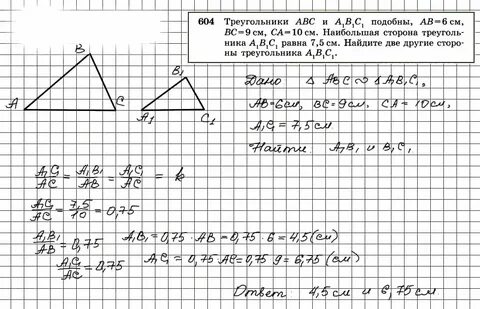 604 Треугольники ABC и A₁B₁C₁ подобны, AB=6 см,
BC=9 см, CA=10 см. Наибольшая сторона треуголь-
ника A₁B₁C₁ равна 7,5 см. Найдите две другие сторо-
ны треугольника A₁B₁C₁.
B
A
C
B₁
A₁
C₁
Дано △ ABC ∾ △ A₁B₁C₁,
AB=6см, BC=9см, CA=10см,
A₁C₁=7,5см
Найти: A₁B₁ и B₁C₁
A₁C₁/AC = A₁B₁/AB = A₁C₁/AC = k
A₁C₁/AC = 7,5/10 = 0,75
A₁B₁/AB = 0,75 A₁B₁=0,75·AB=0,75·6=4,5(см)
A₁C₁/AC = 0,75 A₁C₁=0,75 AC=0,75 9=6,75 (см)
Ответ 4,5см и 6,75см